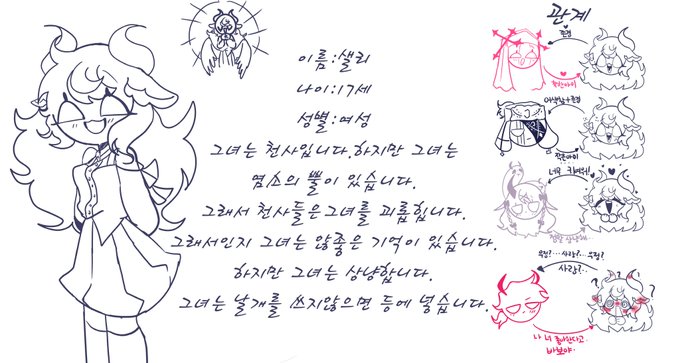 이름:샐리
나이:17세
성별:여성
그녀는 천사입니다.하지만 그녀는
염소의 뿔이 있습니다.
그래서 천사들은그녀를 괴롭힙니다.
그래서인지 그녀는 않좋은 기억이 있습니다.
하지만 그녀는 상냥합니다.
그녀는 날개를 쓰지않으면 등에 넣습니다.
관계
존경
착한아이
존경
작은아이
너무 귀여워!!
정말 상냥해..
우정?...사랑?...우정?
사랑?...
나 너 좋아한다고..
바보야..